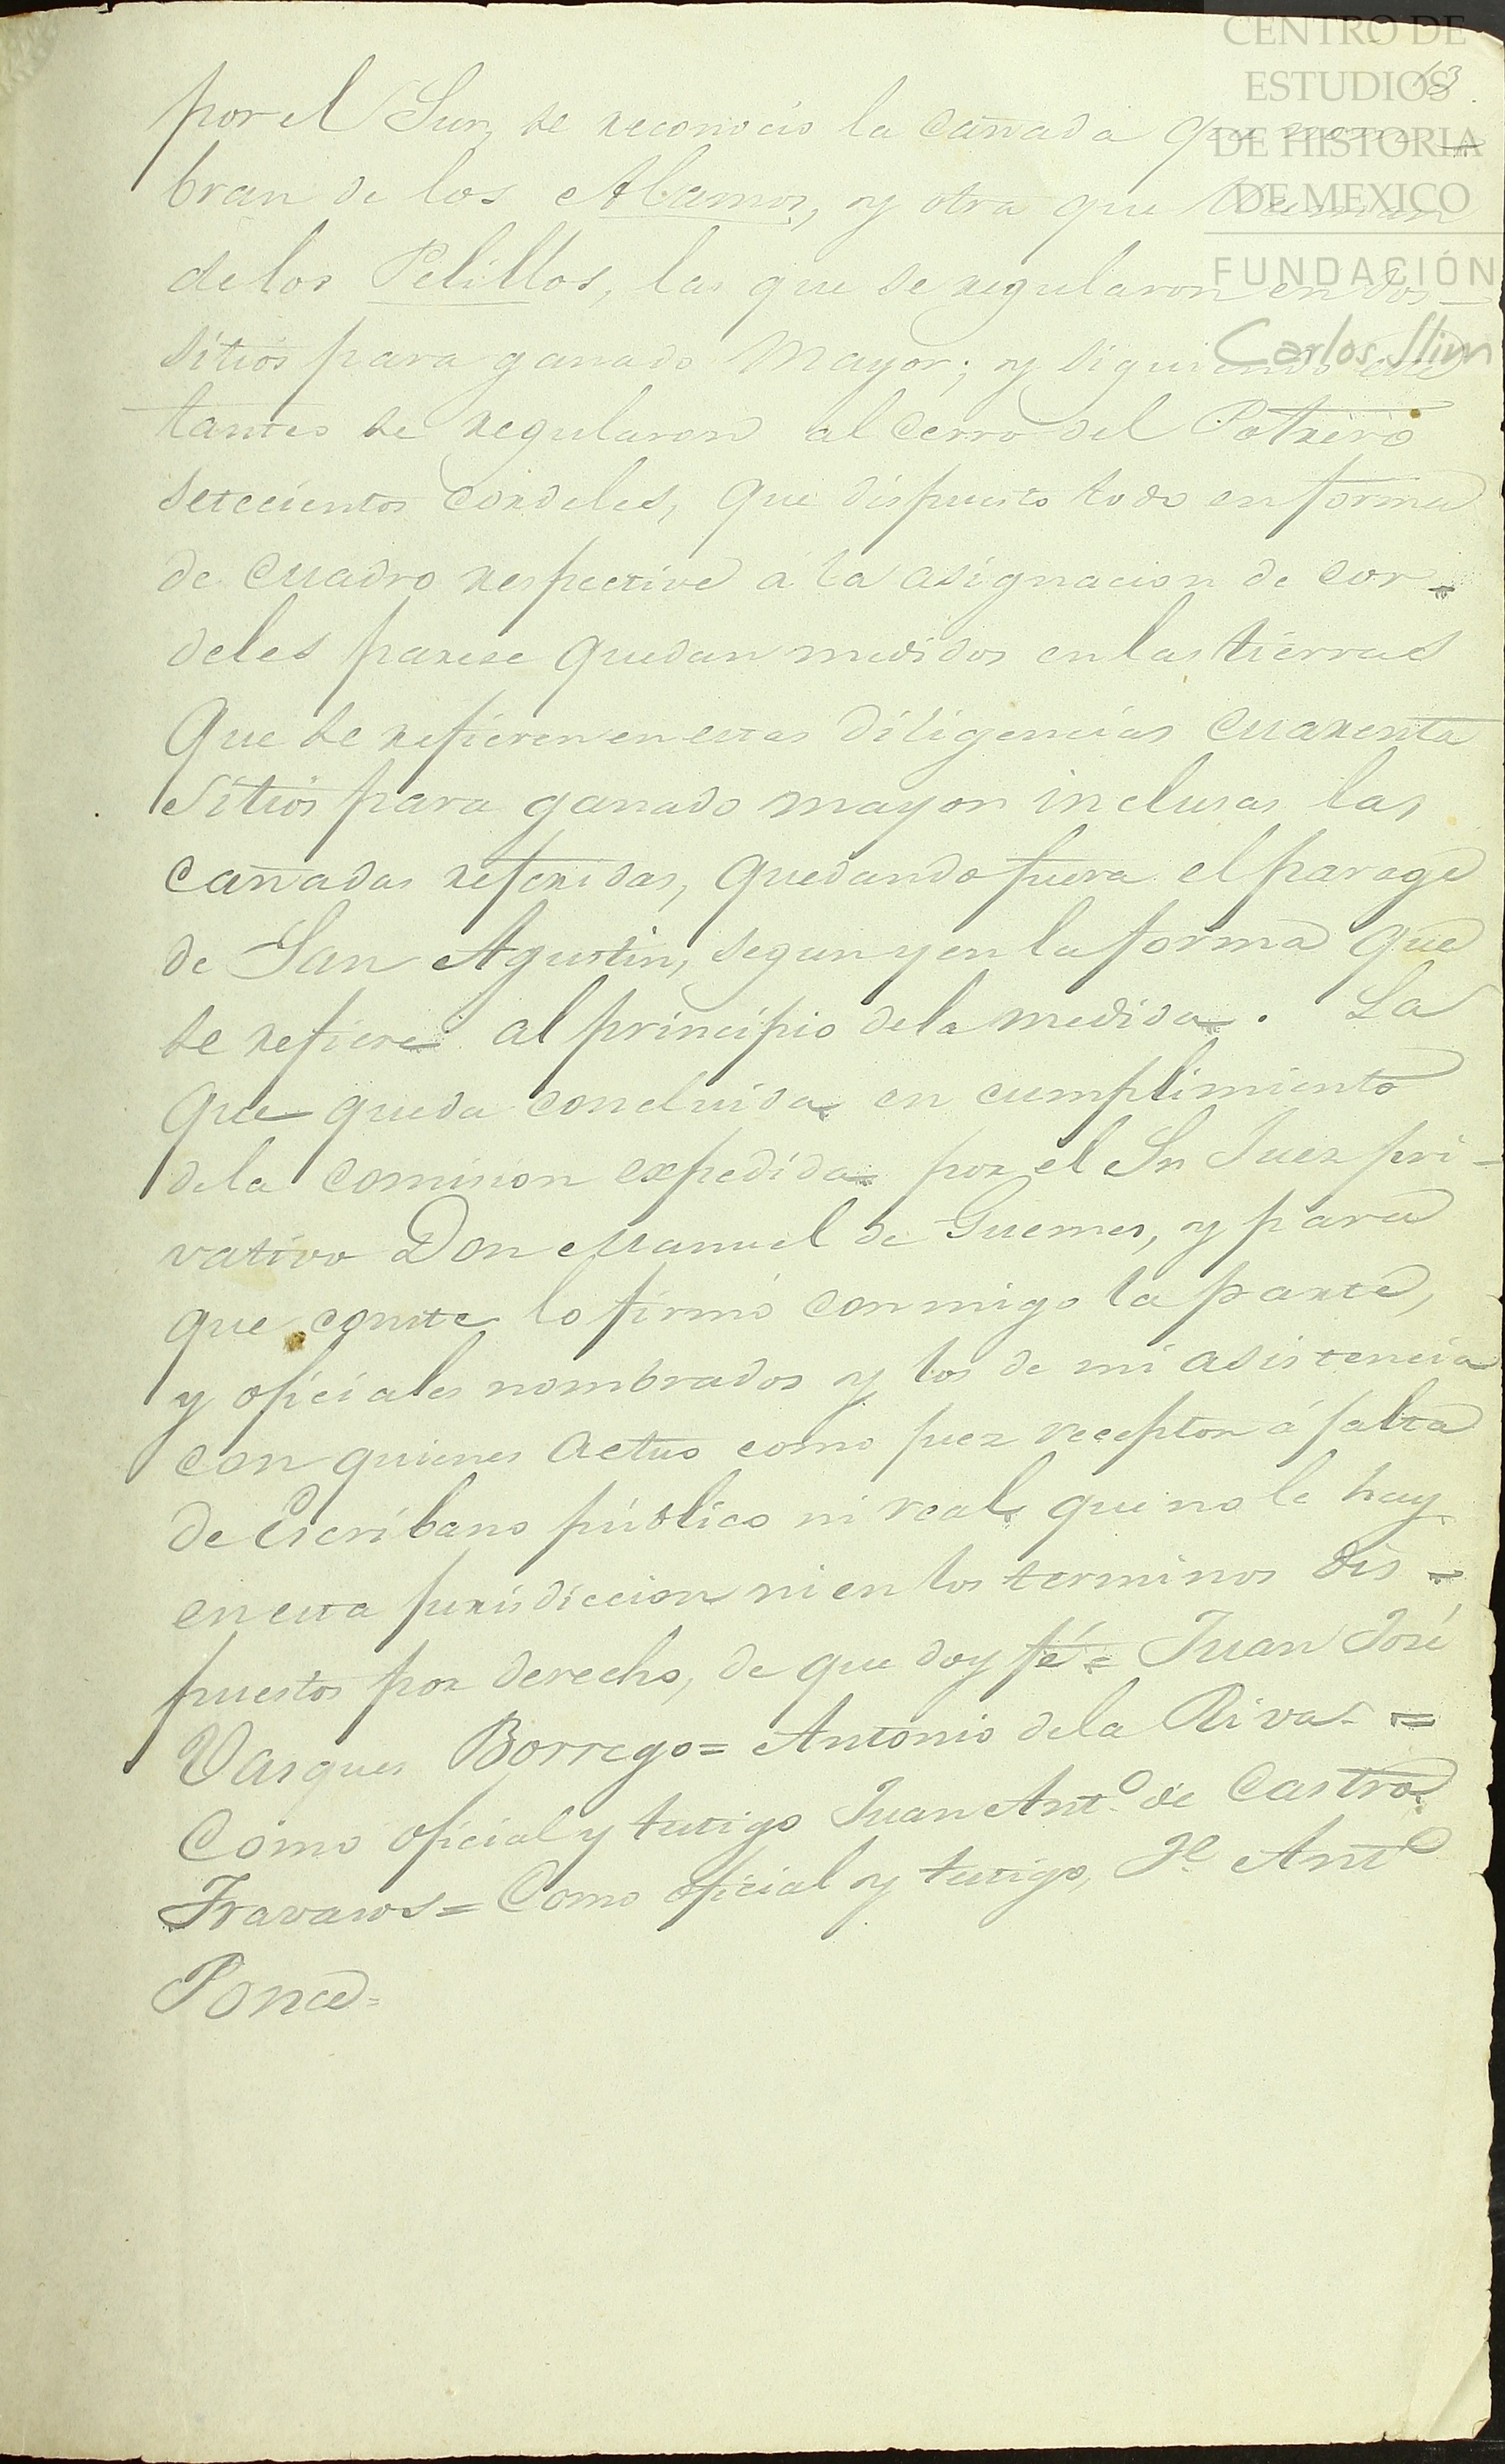 CENTRO DE
ESTUDIOS
DE HISTORIA
DE MEXICO
FUNDACIÓN
Carlos Slim
13
por el Sur, se reconocio la cañada que nom-
bran de los Alamos, y otra que
de los Pelillos, las que se regularon en dos
sitios para ganado Mayor; y siguiendo
tantes se regularon al cerro del Potrero
setecientos cordeles, que dispuesto todo en forma
de cuadro respective á la asignacion de cor-
deles parese quedan medidos en las tierras
que se refieren en estas diligencias cuarenta
sitios para ganado mayor inclusas las
cañadas referidas, quedando fuera el parage
de San Agustin, segun y en la forma que
se refiere al principio dela medida. La
que queda concluida en cumplimiento
dela comision expedida por el Sr Juez pri-
vativo Don Manuel de Guemes, y para
que conste lo firmó conmigo la parte,
y oficiales nombrados y los de mi asistencia
con quienes actuo como juez receptor á falta
de Escribano público ni real que no le hay
en esta jurisdiccion ni en los terminos dis-
puestos por derecho, de que doy fé = Juan José
Vasques Borrego = Antonio dela Riva =
Como oficial y testigo Juan Antº de Castro
= Como oficial y testigo, Je Antº
Ponce =